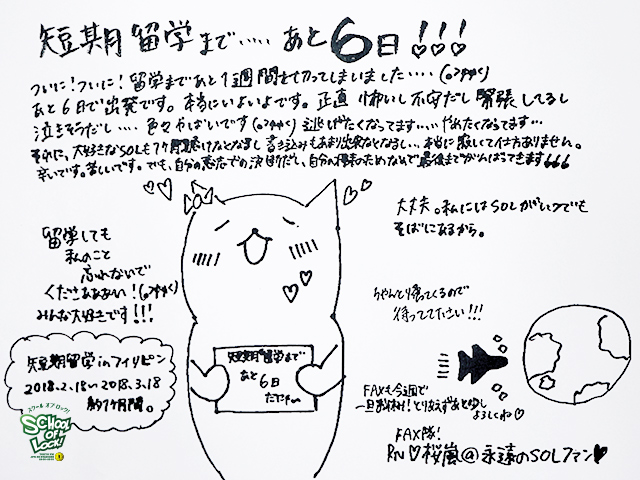 短期留学まで・・・・・ あと6日!!!
ついに!ついに!留学まであと1週間を切ってしまいました・・・・
あと6日で出発です。本当にいよいよです。正直怖いし不安だし緊張してるし
泣きそうだし・・・・色々やばいです 逃げたくなってます・・・・・やめたくなってます・・・
それに、大好きなSOLも1ヶ月聴けなくなるし書き込みもあまり出来なくなるし・・・本当に寂しくて仕方ありません。
辛いです。苦しいです。でも、自分の意志での決断だし、自分の将来のためなので最後までがんばってきます
大丈夫。私にはSOLがいつでも
そばにあるから。
留学しても
私のこと
忘れないで
くださぁぁぁい!
みんな大好きです!!!
ちゃんと帰ってくるので
待っててださい!!!
短期留学まで
あと
6日
だにゃ〜
短期留学inフィリピン
2018.2.18〜2018.3.18
約1ヶ月間。
スクールオブロック!
SCHOOL OF LOCK!
FAXも今週で
一旦お休み!とりあえずあと少し
よろしくね♡
FAX隊!
RN♡桜嵐@永遠のSOLファン♥